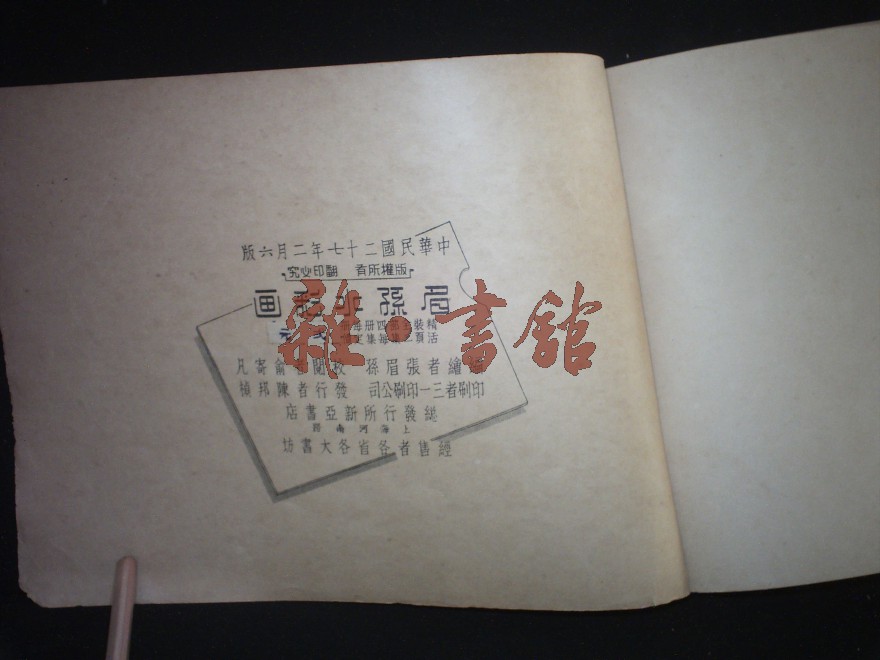 中華民國二十七年二月六版
版權所有 翻印必究
眉孫水彩画
精裝 四册每
活頁 集每集
繪者張眉孫 校閱者俞寄凡
印刷者三一印刷公司 發行者陳邦楨
總發行所新亞書店
上海河南路
經售者各省各大書坊
雜·書館